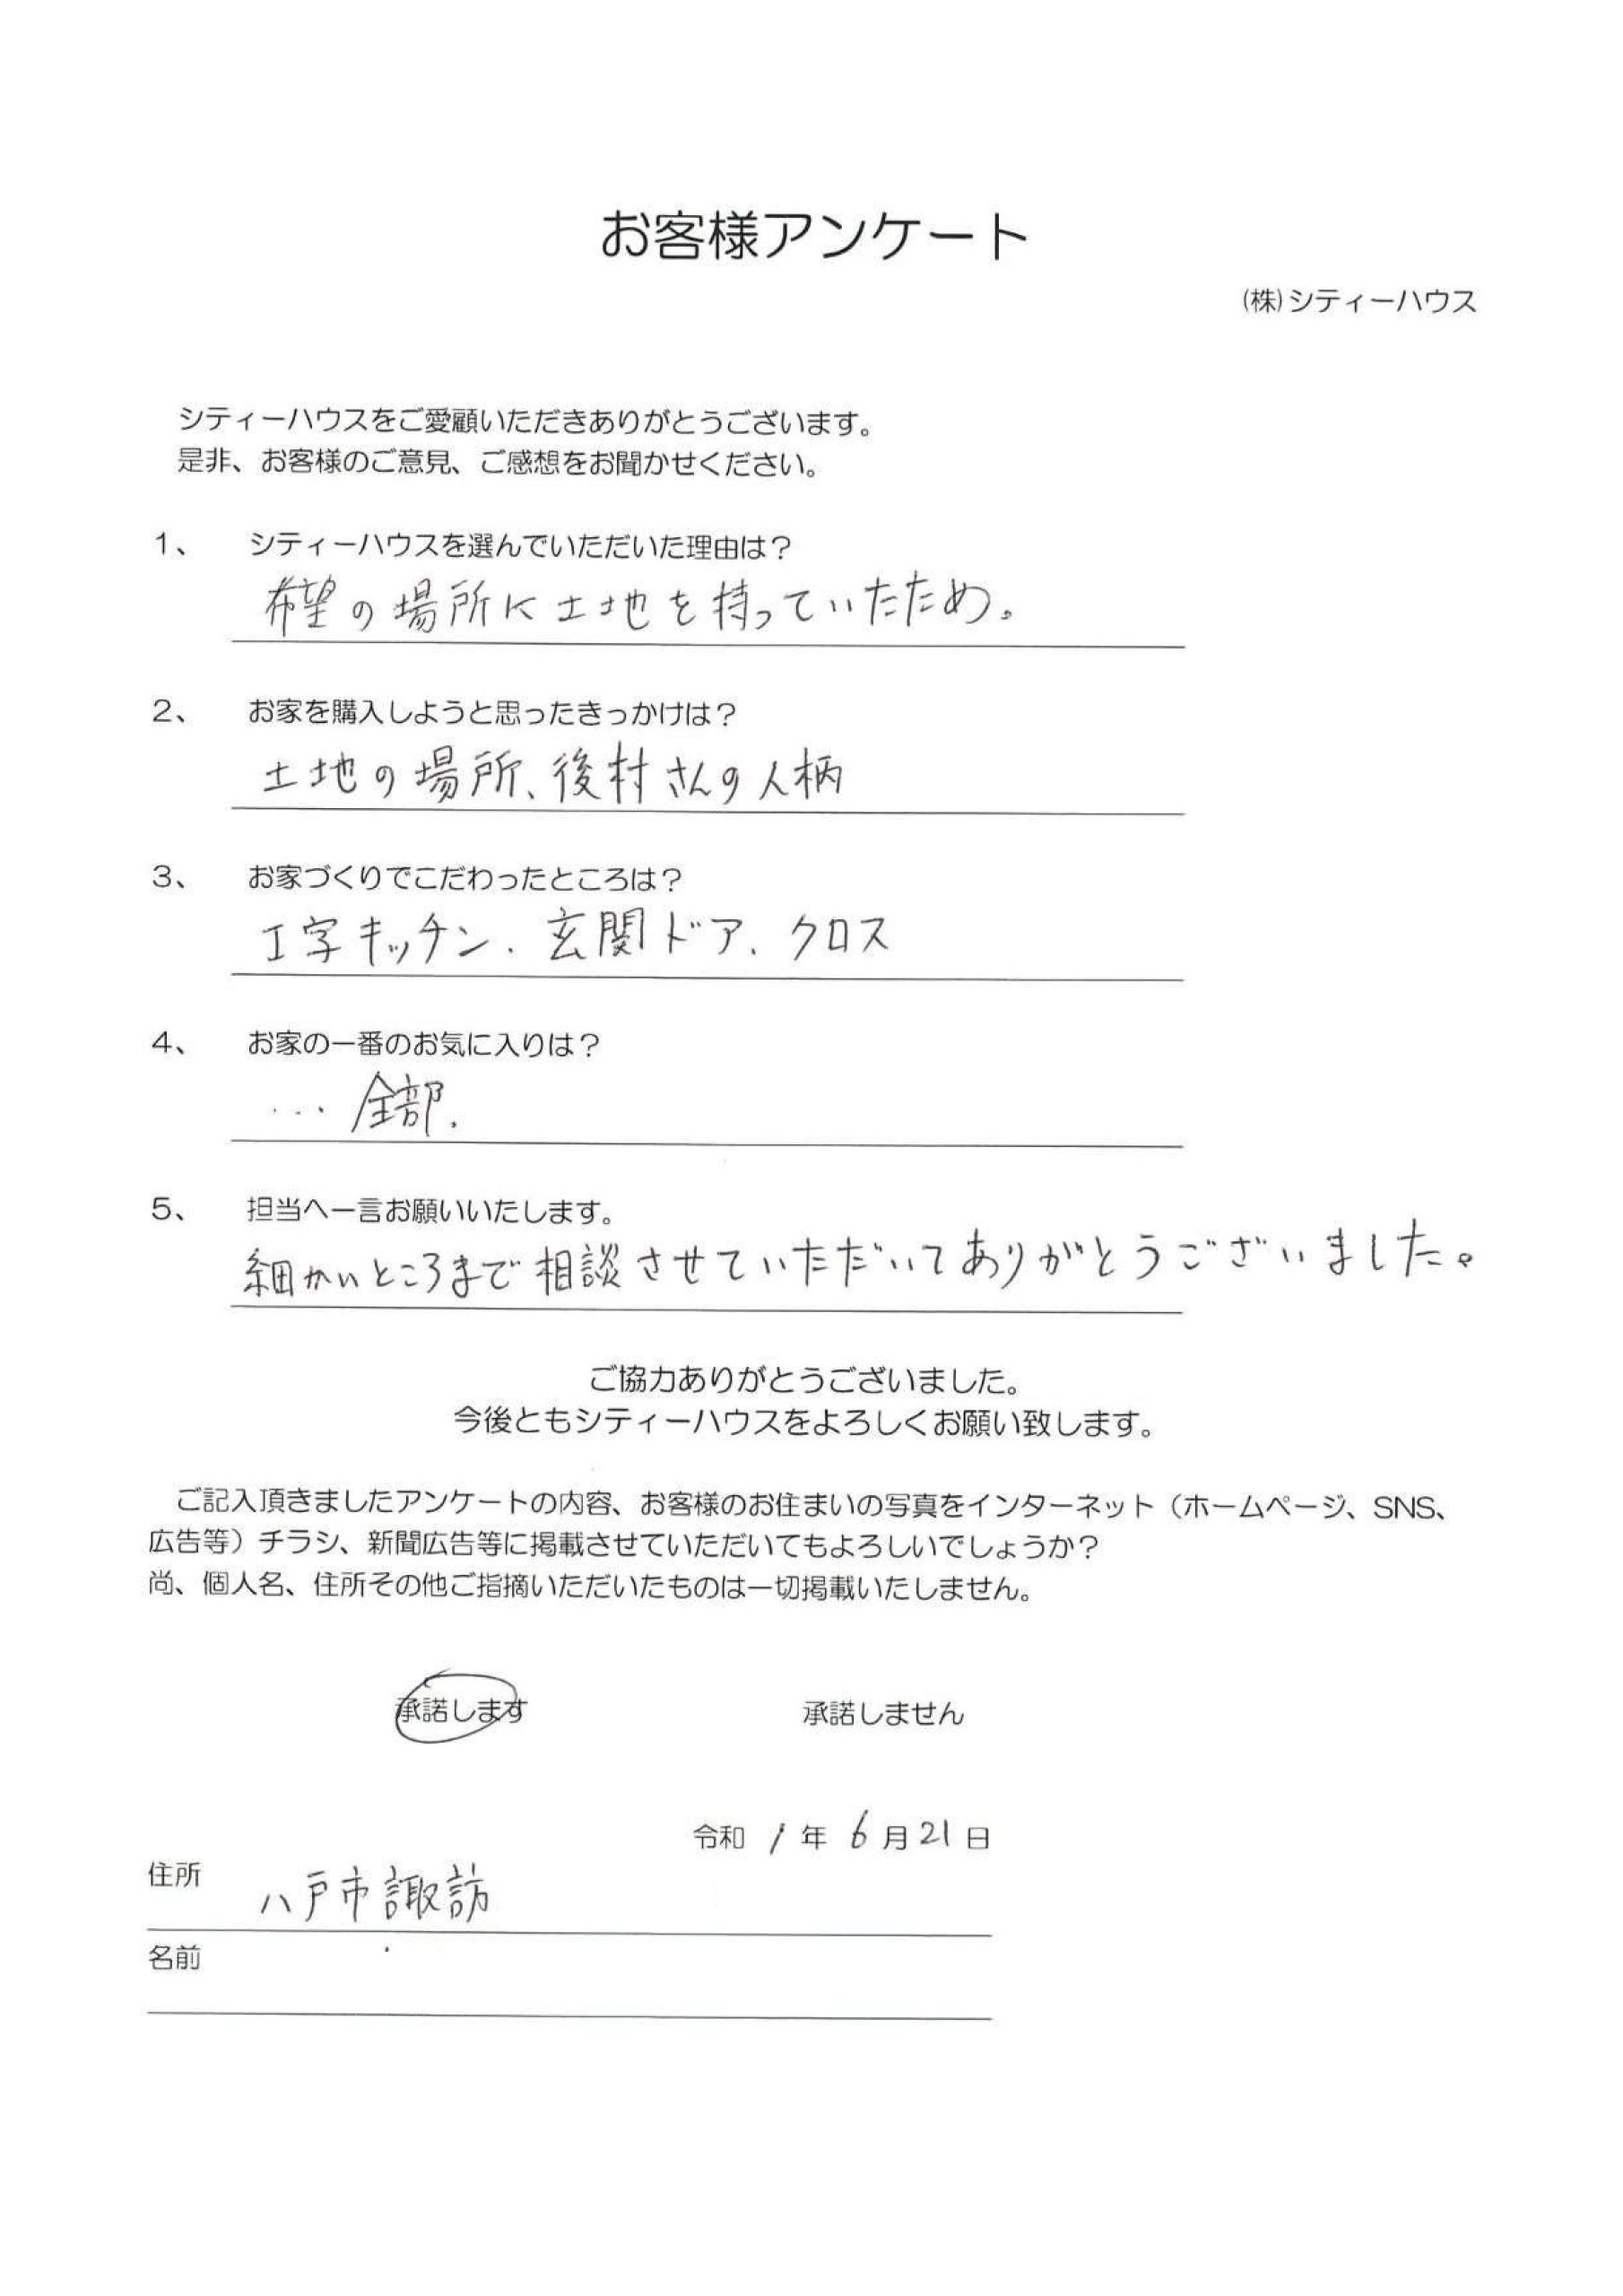 お客様アンケート
(株)シティーハウス
シティーハウスをご愛顧いただきありがとうございます。
是非、お客様のご意見、ご感想をお聞かせください。
1、 シティーハウスを選んでいただいた理由は？
希望の場所に土地を持っていたため。
2、 お家を購入しようと思ったきっかけは？
土地の場所、後村さんの人柄
3、 お家づくりでこだわったところは？
I字キッチン、玄関ドア、クロス
4、 お家の一番のお気に入りは？
… 全部.
5、 担当へ一言お願いいたします。
細かいところまで相談させていただいてありがとうございました。
ご協力ありがとうございました。
今後ともシティーハウスをよろしくお願い致します。
ご記入頂きましたアンケートの内容、お客様のお住まいの写真をインターネット（ホームページ、SNS、
広告等）チラシ、新聞広告等に掲載させていただいてもよろしいでしょうか？
尚、個人名、住所その他ご指摘いただいたものは一切掲載いたしません。
承諾します 承諾しません
令和 1 年 6 月 21 日
住所 八戸市諏訪
名前